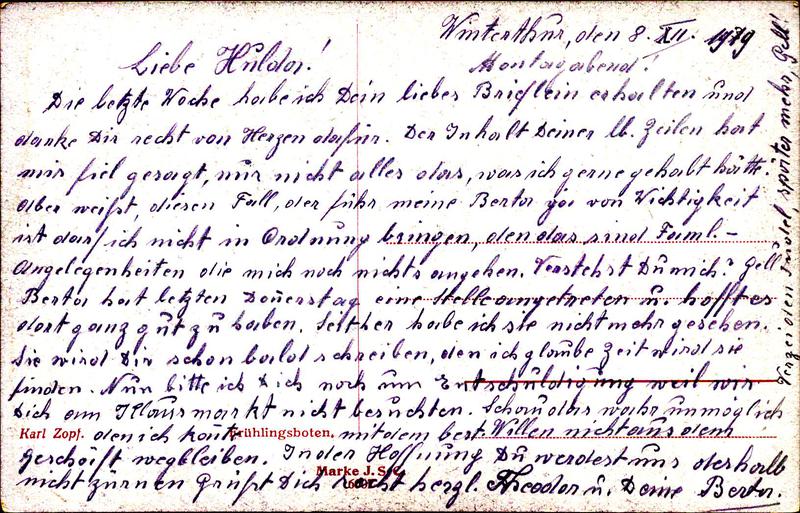 Winterthur, den 8. XII. 1919
Liebe Hulda!
Montagabend!
Die letzte Woche habe ich Dein liebes Brieflein erhalten und
danke Dir recht von Herzen dafür. Der Inhalt Deiner lb. Zeilen hat
mir fiel gesagt, nur nicht alles das, was ich gerne gehabt hätte.
Aber weißt, diesen Fall, der führ meine Berta ja von Wichtigkeit
ist darf ich nicht in Ordnung bringen, den das sind Faml.-
Angelegenheiten die mich noch nichts angehen. Verstehst Du mich? Gell
Berta hat letzten Donerstag eine Stelle angetreten u. hofft es
dort ganz gut zu haben. Seither habe ich sie nicht mehr gesehen.
Sie wird Dir schon bald schreiben, den ich glaube Zeit wird sie
finden. Nun bitte ich Dich noch um Entschuldigung weil wir
Dich am Klausmarkt nicht besuchten. Schau das wahr unmöglich
Karl Zopf. Frühlingsboten.
den ich mit dem best. Willen nicht aus dem
Geschäft wegbleiben. In der Hoffnung Du werdest uns deshalb
Marke J.S.C.
nicht zürnen grüßt Dich recht herzl. Theodor u. Deine Berta.
Verzei den Sudel später mehr, Gell!